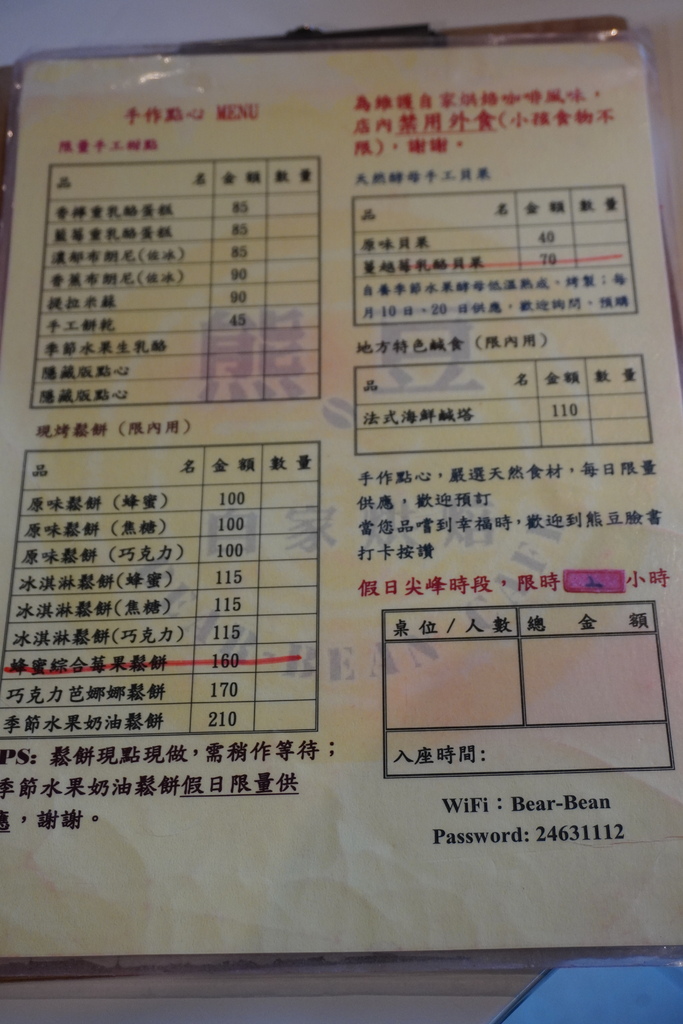 手作點心 MENU
限量手工甜點
品 名 金 額 數 量
香檸重乳酪蛋糕 85
藍莓重乳酪蛋糕 85
濃郁布朗尼(佐冰) 85
香蕉布朗尼(佐冰) 90
提拉米蘇 90
手工餅乾 45
季節水果生乳酪
隱藏版點心
隱藏版點心
現烤鬆餅（限內用）
品 名 金 額 數 量
原味鬆餅（蜂蜜） 100
原味鬆餅（焦糖） 100
原味鬆餅（巧克力） 100
冰淇淋鬆餅(蜂蜜) 115
冰淇淋鬆餅(焦糖) 115
冰淇淋鬆餅(巧克力) 115
蜂蜜綜合莓果鬆餅 160
巧克力芭娜娜鬆餅 170
季節水果奶油鬆餅 210
PS: 鬆餅現點現做，需稍作等待；
季節水果奶油鬆餅假日限量供
應，謝謝。
為維護自家烘焙咖啡風味，
店內禁用外食(小孩食物不
限)，謝謝。
天然酵母手工貝果
品 名 金 額 數 量
原味貝果 40
蔓越莓乳酪貝果 70
自養季節水果酵母低溫熟成、烤製；每
月10日、20日供應，歡迎詢問、預購
地方特色鹹食（限內用）
品 名 金 額 數 量
法式海鮮鹹塔 110
手作點心，嚴選天然食材，每日限量
供應，歡迎預訂
當您品嚐到幸福時，歡迎到熊豆臉書
打卡按讚
假日尖峰時段，限時 小時
桌位/人數 總 金 額
入座時間：
WiFi：Bear-Bean
Password: 24631112
熊豆
自家烘焙
BEAR-BEAN CAFE